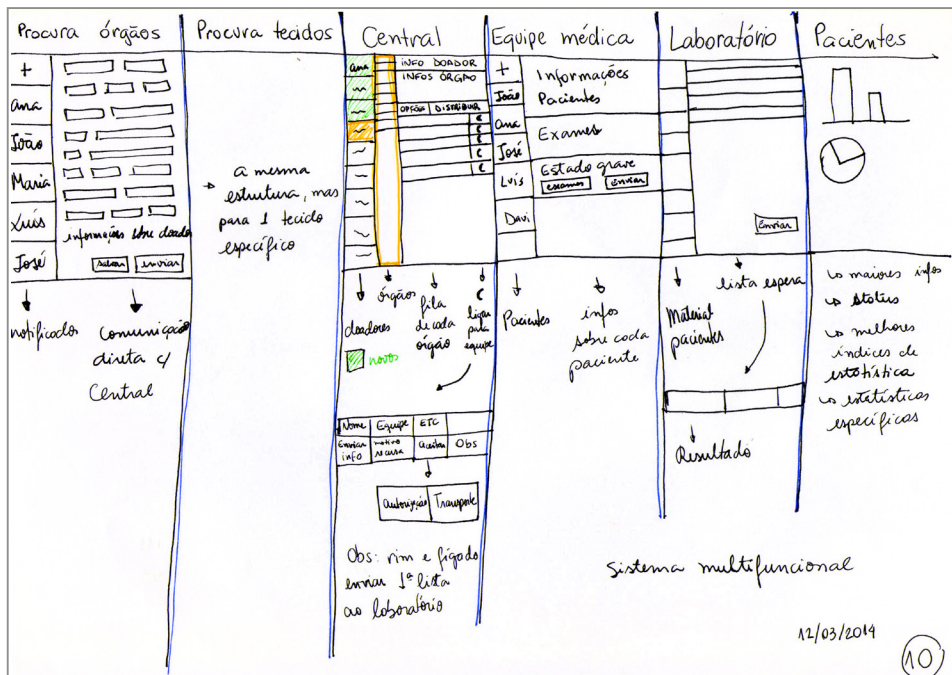 Procura órgãos
+
Ana
João
Maria
Luís
José
informações sobre doador
salvar
enviar
notificados
comunicação
direta c/
Central
Procura tecidos
→ a mesma
estrutura, mas
para 1 tecido
específico
Central
ana
INFO DOADOR
INFOS ÓRGÃO
OPÇÕES
DISTRIBUIR
doadores
novos
órgãos
fila
de cada
órgão
ligar
para
equipe
Nome
Equipe
ETC
Enviar
info
motivo
recusa
aceitar
Obs
autorização
Transporte
Obs: rim e fígado
enviar 1ª lista
ao laboratório
Equipe médica
+
João
Ana
José
Luís
Davi
Informações
Pacientes
Exames
Estado grave
exames
Enviar
Pacientes
infos
sobre cada
paciente
Laboratório
Enviar
Material
pacientes
lista espera
Resultado
Pacientes
↳ maiores infos
↳ status
↳ melhores
índices de
estatística
↳ estatísticas
específicas
Sistema multifuncional
12/03/2014
10